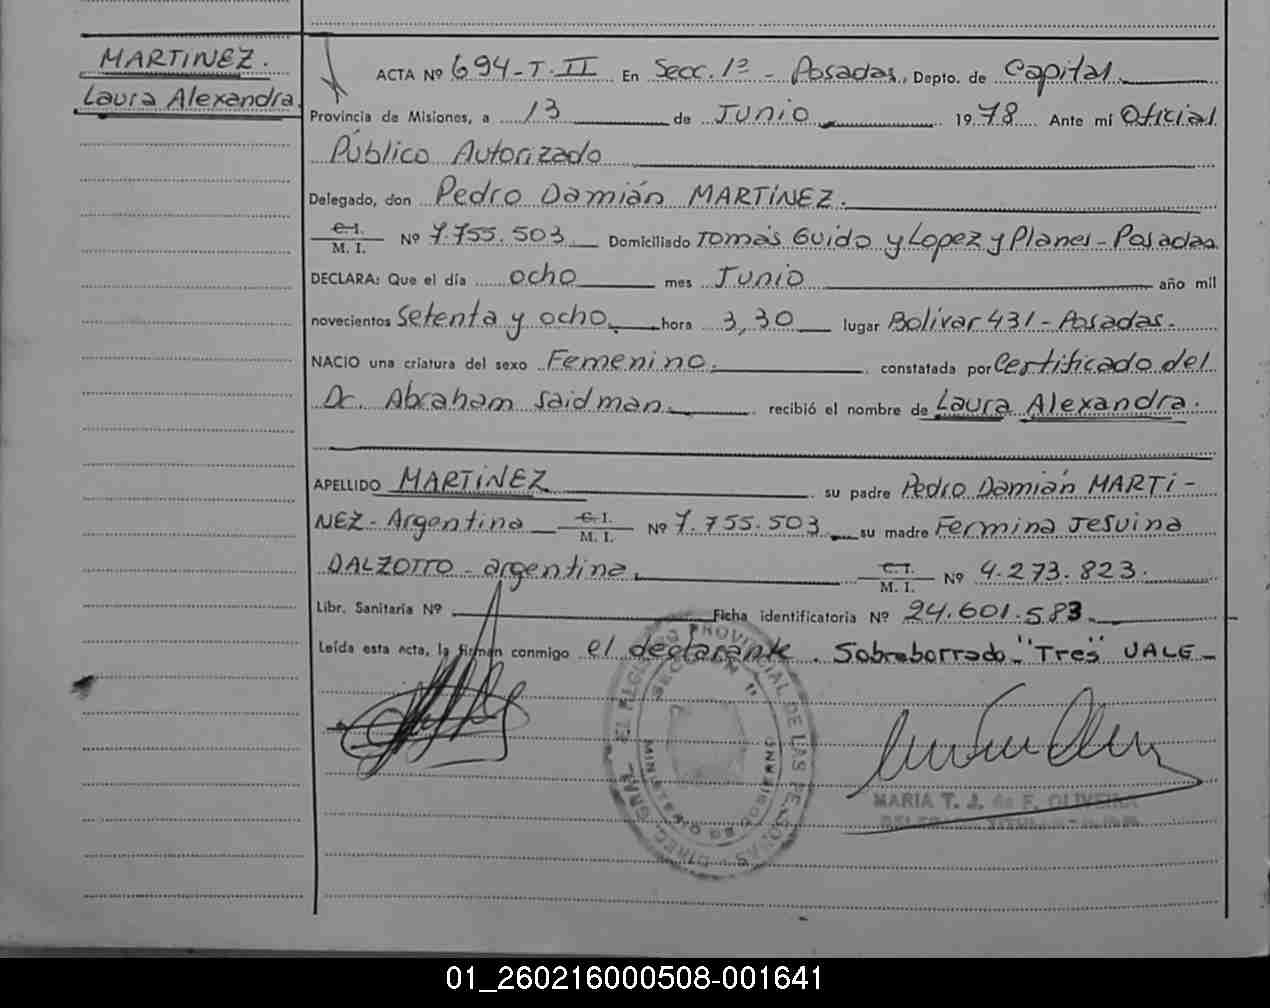 MARTINEZ.
Laura Alexandra
ACTA Nº 694-T.II En Secc. 1ª - Posadas, Depto. de Capital.
Provincia de Misiones, a 13 de Junio 1978 Ante mí Oficial
Público Autorizado
Delegado, don Pedro Damián MARTINEZ.
C. I.
M. I. Nº 7.755.503 Domiciliado Tomás Guido y Lopez y Planes - Posadas
DECLARA: Que el día ocho mes Junio año mil
novecientos Setenta y ocho hora 3,30 lugar Bolívar 431 - Posadas.
NACIO una criatura del sexo Femenino. constatada por Certificado del
Dr. Abraham Saidman. recibió el nombre de Laura Alexandra.
APELLIDO MARTINEZ su padre Pedro Damián MARTI-
NEZ - Argentina C. I.
M. I. Nº 7.755.503 su madre Fermina Jesuina
DALZOTTO - argentina. C. I.
M. I. Nº 4.273.823.
Libr. Sanitaria Nº Ficha identificatoria Nº 24.601.583
Leída esta acta, la firman conmigo el declarante. Sobreborrado - "Tres" VALE -
REGISTRO PROVINCIAL DE LAS PERSONAS - DIREC. GRAL.
MARIA T. J. de F. OLIVEIRA
01_260216000508-001641